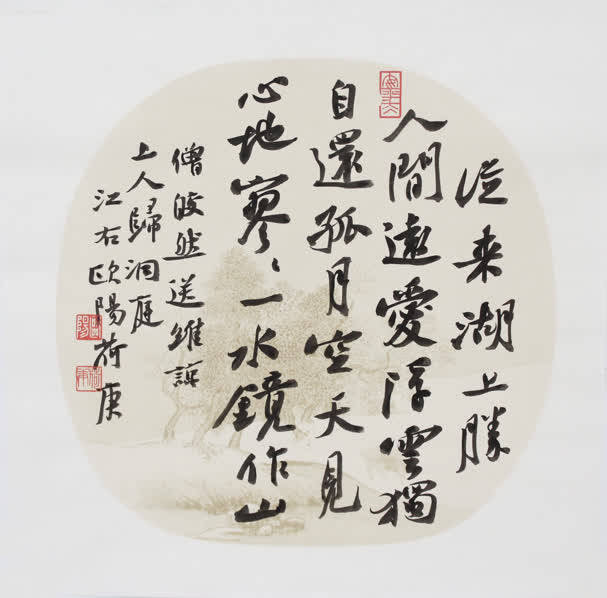 從来湖上勝
人間遠愛浮雲獨
自還孤月空天見
心地寥々一水鏡作山
僧皎然送維諒
上人歸洞庭
江右歐陽荷庚